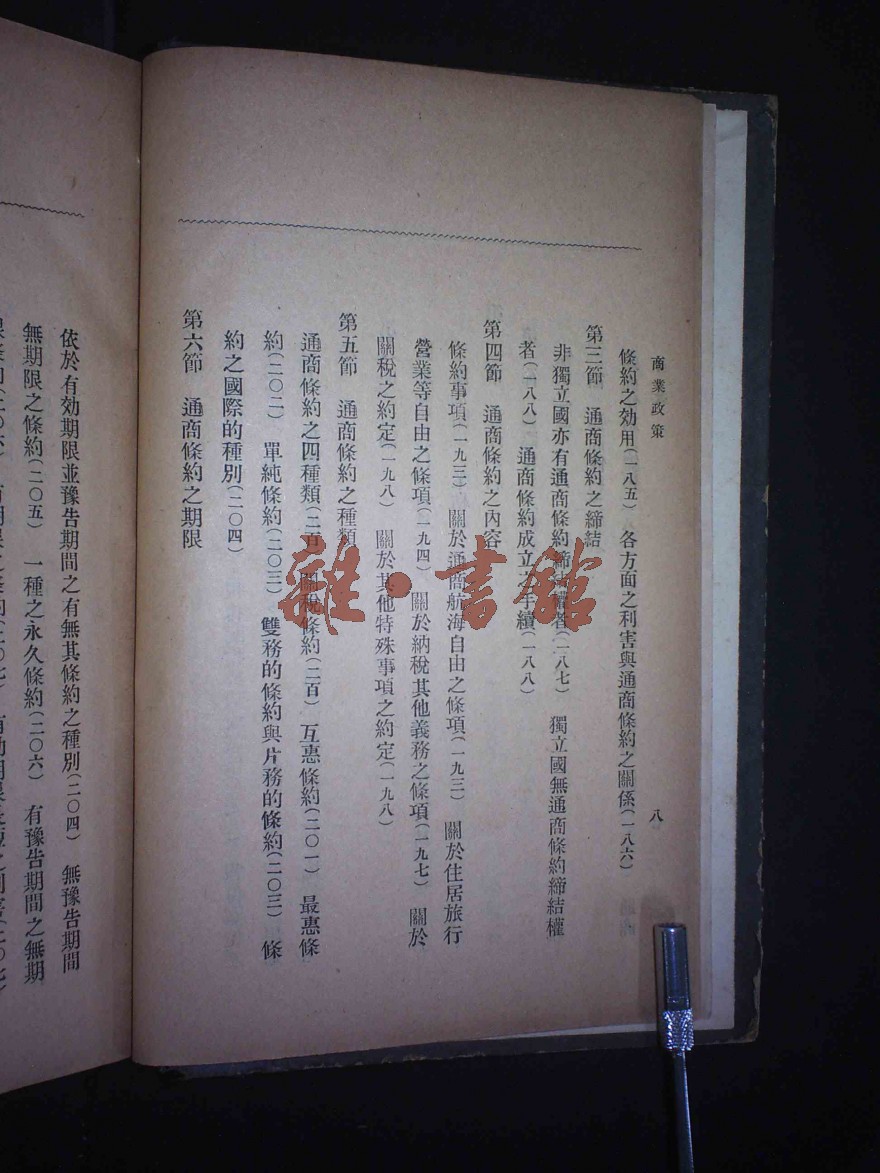 商業政策
八
條約之効用(一八五) 各方面之利害與通商條約之關係(一八六)
第三節 通商條約之締結
非獨立國亦有通商條約締結權者(一八七) 獨立國無通商條約締結權
者(一八八) 通商條約成立之手續(一八八)
第四節 通商條約之內容
條約事項(一九三) 關於通商航海自由之條項(一九三) 關於住居旅行
營業等自由之條項(一九四) 關於納稅其他義務之條項(一九七) 關於
關稅之約定(一九八) 關於其他特殊事項之約定(一九八)
第五節 通商條約之種類
通商條約之四種類(二百) 關稅條約(二百) 互惠條約(二〇一) 最惠條
約(二〇二) 單純條約(二〇三) 雙務的條約與片務的條約(二〇三) 條
約之國際的種別(二〇四)
第六節 通商條約之期限
依於有効期限並豫告期間之有無其條約之種別(二〇四) 無豫告期間
無期限之條約(二〇五) 一種之永久條約(二〇六) 有豫告期間之無期
雜·書館